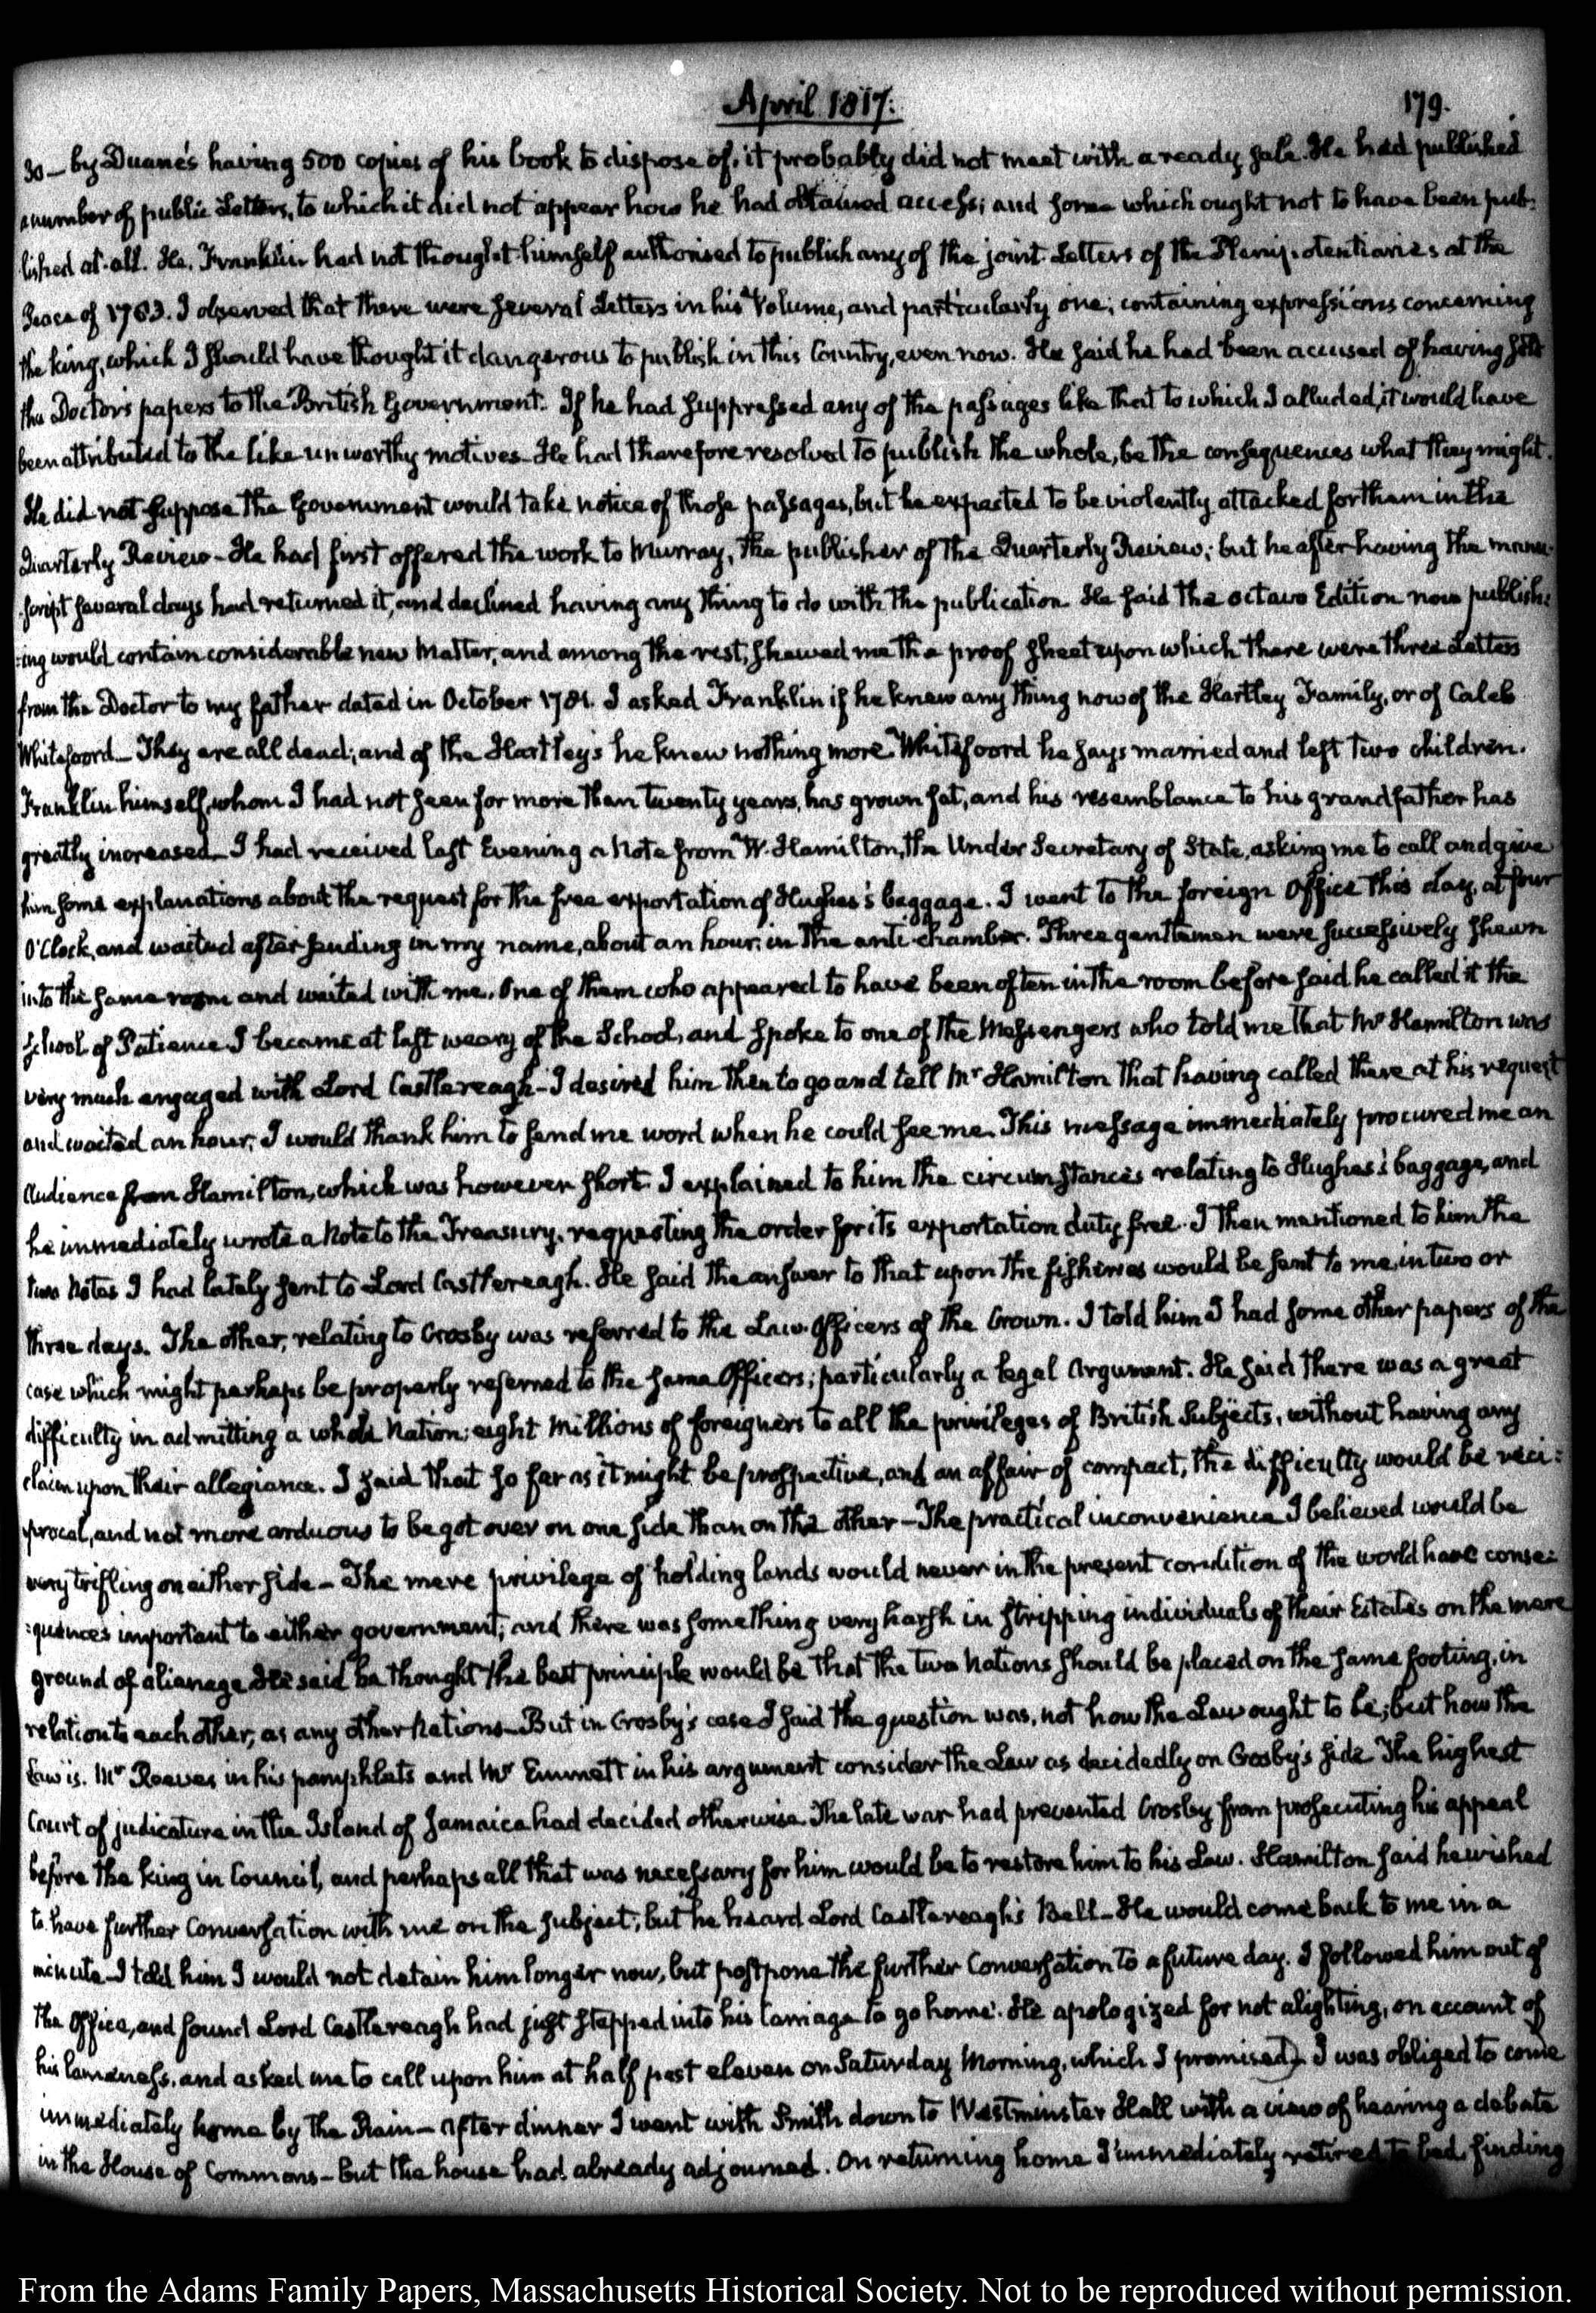 April 1817.
179.
30 — by Duane's having 500 copies of his book to dispose of, it probably did not meet with a ready sale. He had published
a number of public Letters, to which it did not appear how he had obtained access; and some which ought not to have been pub:
lished at all. He, Franklin had not thought himself authorised to publish any of the joint Letters of the Plenipotentiaries at the
Peace of 1783. I observed that there were several Letters in his Volume, and particularly one, containing expressions concerning
the king, which I should have thought it dangerous to publish in this Country, even now. He said he had been accused of having sold
the Doctor's papers to the British Government. If he had suppressed any of the passages like that to which I alluded, it would have
been attributed to the like unworthy motives — He had therefore resolved to publish the whole, be the consequences what they might.
He did not suppose the Government would take notice of those passages, but he expected to be violently attacked for them in the
Quarterly Review — He had first offered the work to Murray, the publisher of the Quarterly Review; but he after having the manu:
:script several days had returned it, and declined having any thing to do with the publication. He said the octavo Edition now publish:
:ing would contain considerable new Matter, and among the rest, shewed me the proof sheet upon which there were three Letters
from the Doctor to my father dated in October 1781. I asked Franklin if he knew any thing now of the Hartley Family, or of Caleb
Whitefoord — They are all dead; and of the Hartley's he knew nothing more. Whitefoord he says married and left two children.
Franklin himself, whom I had not seen for more than twenty years, has grown fat, and his resemblance to his grandfather has
greatly increased — I had received last Evening a Note from W. Hamilton, the Under Secretary of State, asking me to call and give
him some explanations about the request for the free exportation of Hughes's baggage. I went to the foreign Office this day, at four
O'Clock, and waited after sending in my name, about an hour, in the anti-chamber. Three gentlemen were successively shewn
into the same room and waited with me. One of them who appeared to have been often in the room before said he called it the
School of Patience. I became at last weary of the School, and spoke to one of the Messengers who told me that Mr Hamilton was
very much engaged with Lord Castlereagh — I desired him then to go and tell Mr Hamilton that having called there at his request
and waited an hour, I would thank him to send me word when he could see me. This message immediately procured me an
Audience from Hamilton, which was however short. I explained to him the circumstances relating to Hughes's baggage, and
he immediately wrote a Note to the Treasury, requesting the order for its exportation duty free. I then mentioned to him the
two Notes I had lately sent to Lord Castlereagh. He said the answer to that upon the fisheries would be sent to me, in two or
three days. The other, relating to Crosby was referred to the Law Officers of the Crown. I told him I had some other papers of the
case which might perhaps be properly referred to the same Officers; particularly a legal Argument. He said there was a great
difficulty in admitting a whole Nation; eight Millions of foreigners to all the privileges of British Subjects, without having any
claim upon their allegiance. I said that so far as it might be prospective, and an affair of compact, the difficulty would be reci:
:procal, and not more arduous to be got over on one side than on the other — The practical inconvenience I believed would be
very trifling on either side — The mere privilege of holding lands would never in the present condition of the world have conse:
:quences important to either government; and there was something very harsh in stripping individuals of their Estates on the mere
ground of alienage. He said he thought the best principle would be that the two Nations should be placed on the same footing, in
relation to each other, as any other Nations — But in Crosby's case I said the question was, not how the Law ought to be; but how the
Law is. Mr Reeves in his pamphlets and Mr Emmett in his argument consider the Law as decidedly on Crosby's side. The highest
Court of judicature in the Island of Jamaica had decided otherwise. The late war had prevented Crosby from prosecuting his appeal
before the King in Council, and perhaps all that was necessary for him would be to restore him to his Law. Hamilton said he wished
to have further Conversation with me on the subject; but he heard Lord Castlereagh's Bell — He would come back to me in a
minute — I told him I would not detain him longer now, but postpone the further Conversation to a future day. I followed him out of
the Office, and found Lord Castlereagh had just stepped into his Carriage to go home. He apologized for not alighting, on account of
his lameness, and asked me to call upon him at half past eleven on Saturday Morning, which I promised. I was obliged to come
immediately home by the Rain — After dinner I went with Smith down to Westminster Hall with a view of hearing a debate
in the House of Commons — but the house had already adjourned. On returning home I immediately retired to bed, finding
From the Adams Family Papers, Massachusetts Historical Society. Not to be reproduced without permission.